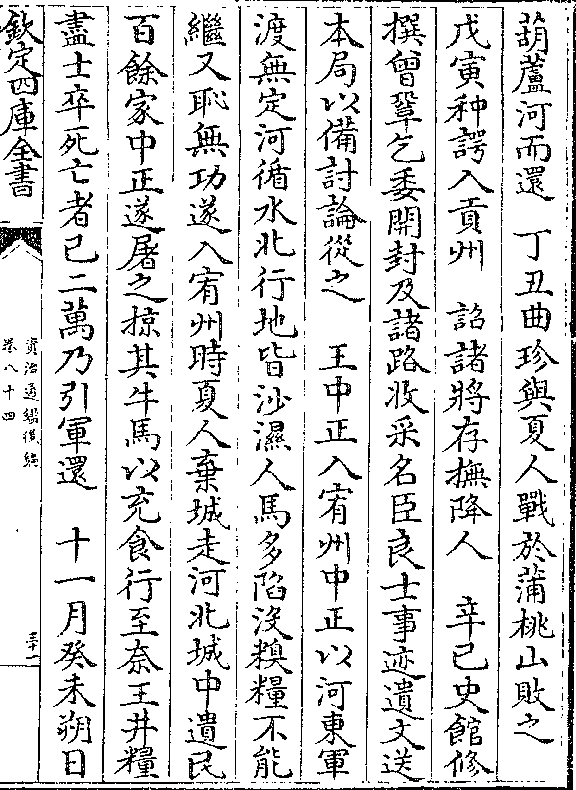 葫蘆河而還　丁丑曲珍與夏人戰於蒲桃山敗之
戊寅种諤入貢州　詔諸將存撫降人　辛巳史館修
撰曾鞏乞委開封及諸路收采名臣良士事迹遺文送
本局以備討論從之　王中正入宥州中正以河東軍
渡無定河循水北行地皆沙濕人馬多陷沒糗糧不能
繼又恥無功遂入宥州時夏人棄城走河北城中遺民
百餘家中正遂屠之掠其牛馬以充食行至奈王井糧
盡士卒死亡者已二萬乃引軍還　十一月癸未朔日
欽定四庫全書
資治通鑑後編
卷八十四
三十一